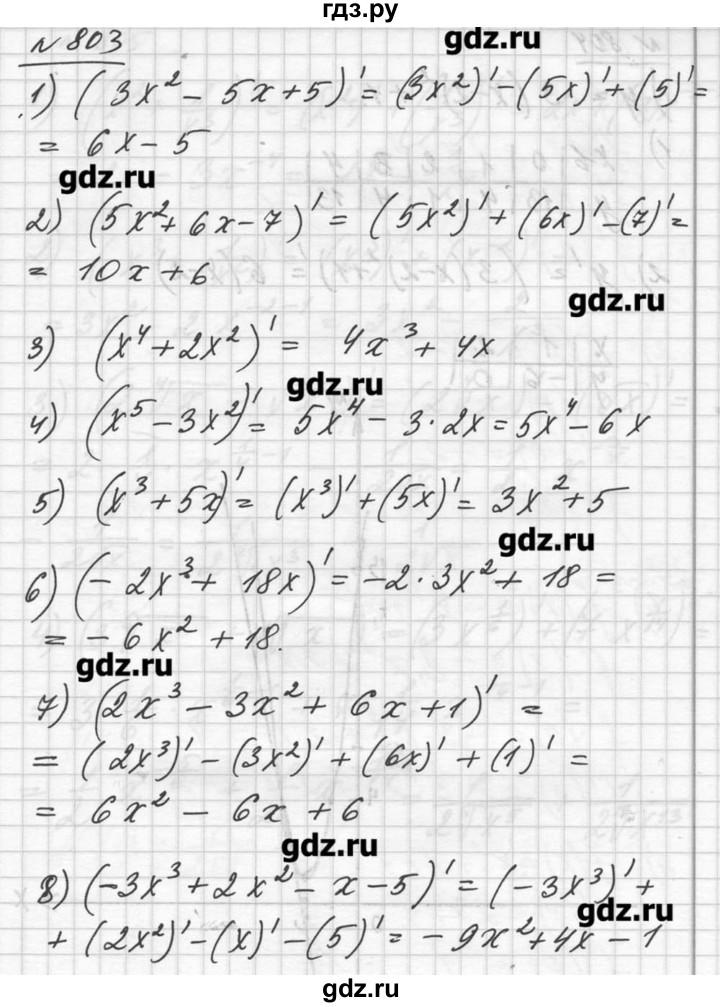 гдз.ру
№ 803
gdz.ru
1) (3x² - 5x + 5)' = (3x²)' - (5x)' + (5)' =
= 6x - 5
gdz.ru
2) (5x² + 6x - 7)' = (5x²)' + (6x)' - (7)' =
= 10x + 6
gdz.ru
3) (x⁴ + 2x²)' = 4x³ + 4x
gdz.ru
4) (x⁵ - 3x²)' = 5x⁴ - 3·2x = 5x⁴ - 6x
5) (x³ + 5x)' = (x³)' + (5x)' = 3x² + 5
gdz.ru
6) (-2x³ + 18x)' = -2·3x² + 18 =
= -6x² + 18.
gdz.ru
7) (2x³ - 3x² + 6x + 1)' =
= (2x³)' - (3x²)' + (6x)' + (1)' =
= 6x² - 6x + 6
gdz.ru
8) (-3x³ + 2x² - x - 5)' = (-3x³)' +
gdz.ru
+ (2x²)' - (x)' - (5)' = -9x² + 4x - 1
gdz.ru